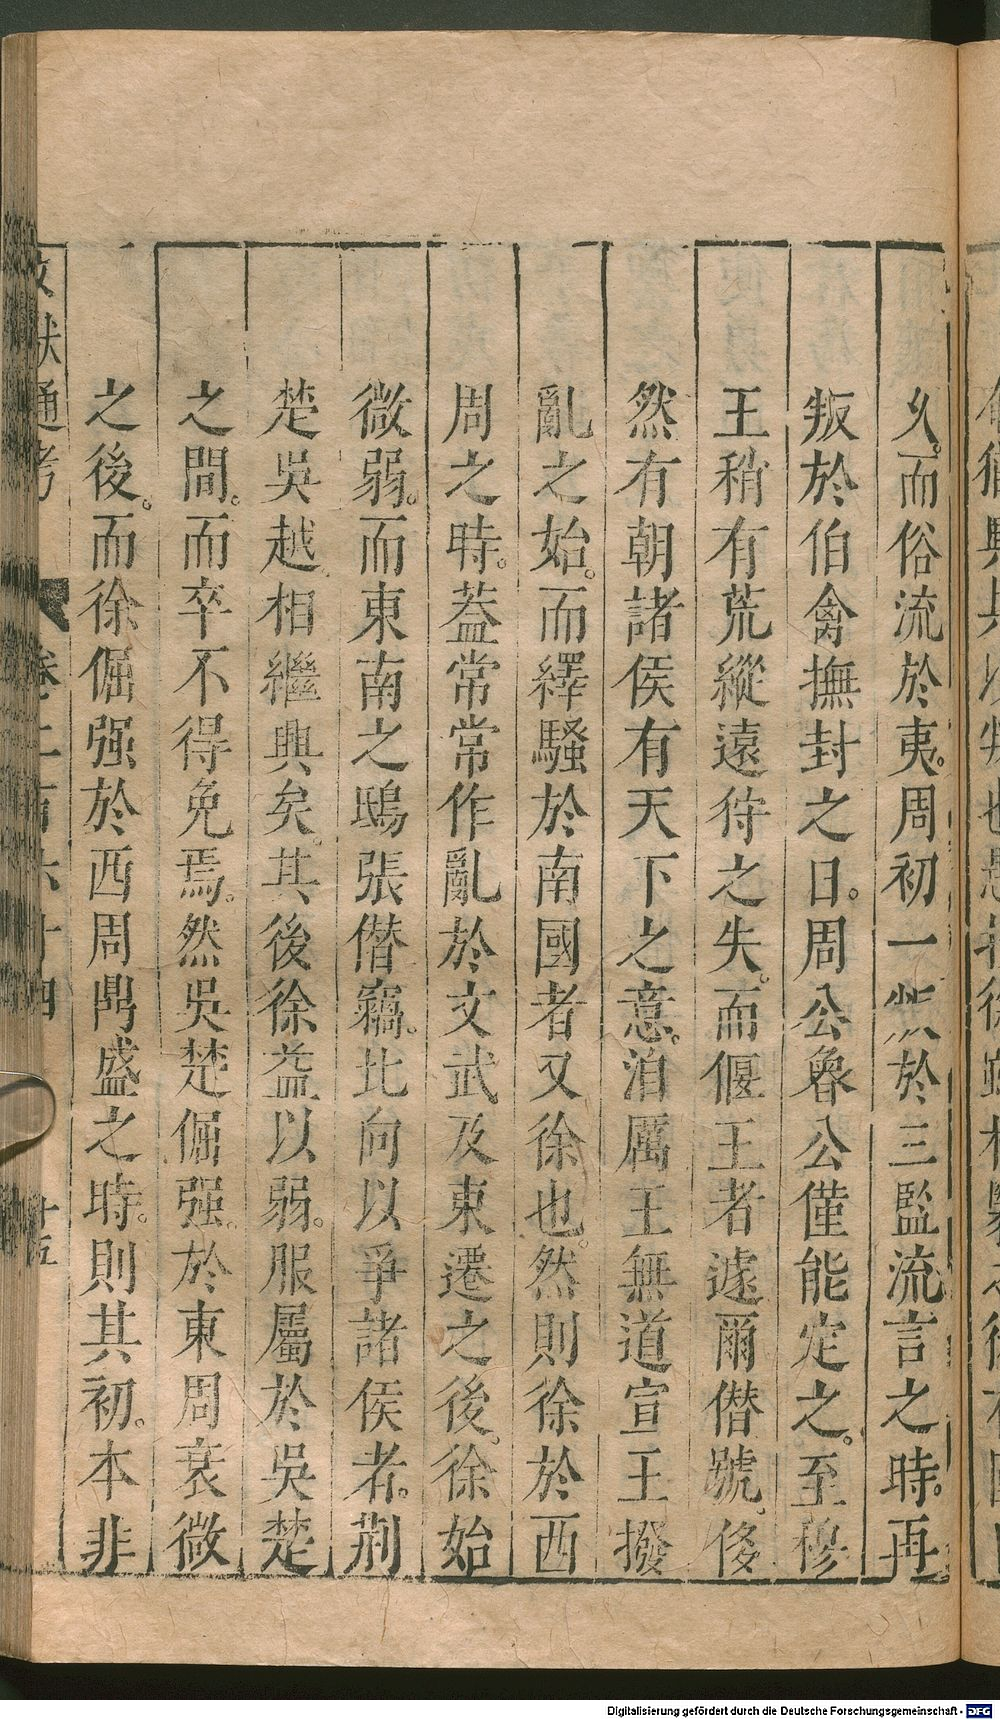 久。而俗流於夷。周初一叛於三監流言之時。再
叛於伯禽撫封之日。周公魯公僅能定之。至穆
王稍有荒縱遠待之失。而偃王者遽爾僣號。俊
然有朝諸侯有天下之意。洎厲王無道宣王撥
亂之始。而繹騷於南國者又徐也。然則徐於西
周之時。葢常常作亂於文武及東遷之後。徐始
微弱。而東南之鴟張僣竊。比向以爭諸侯者。荆
楚吳越相繼興矣。其後徐益以弱。服屬於吳楚
之間。而卒不得免焉。然吳楚倔强。於東周衰微
之後。而徐倔强於西周鼎盛之時。則其初。本非
文獻通考 卷二百六十四 十五
Digitalisierung gefördert durch die Deutsche Forschungsgemeinschaft - DFG